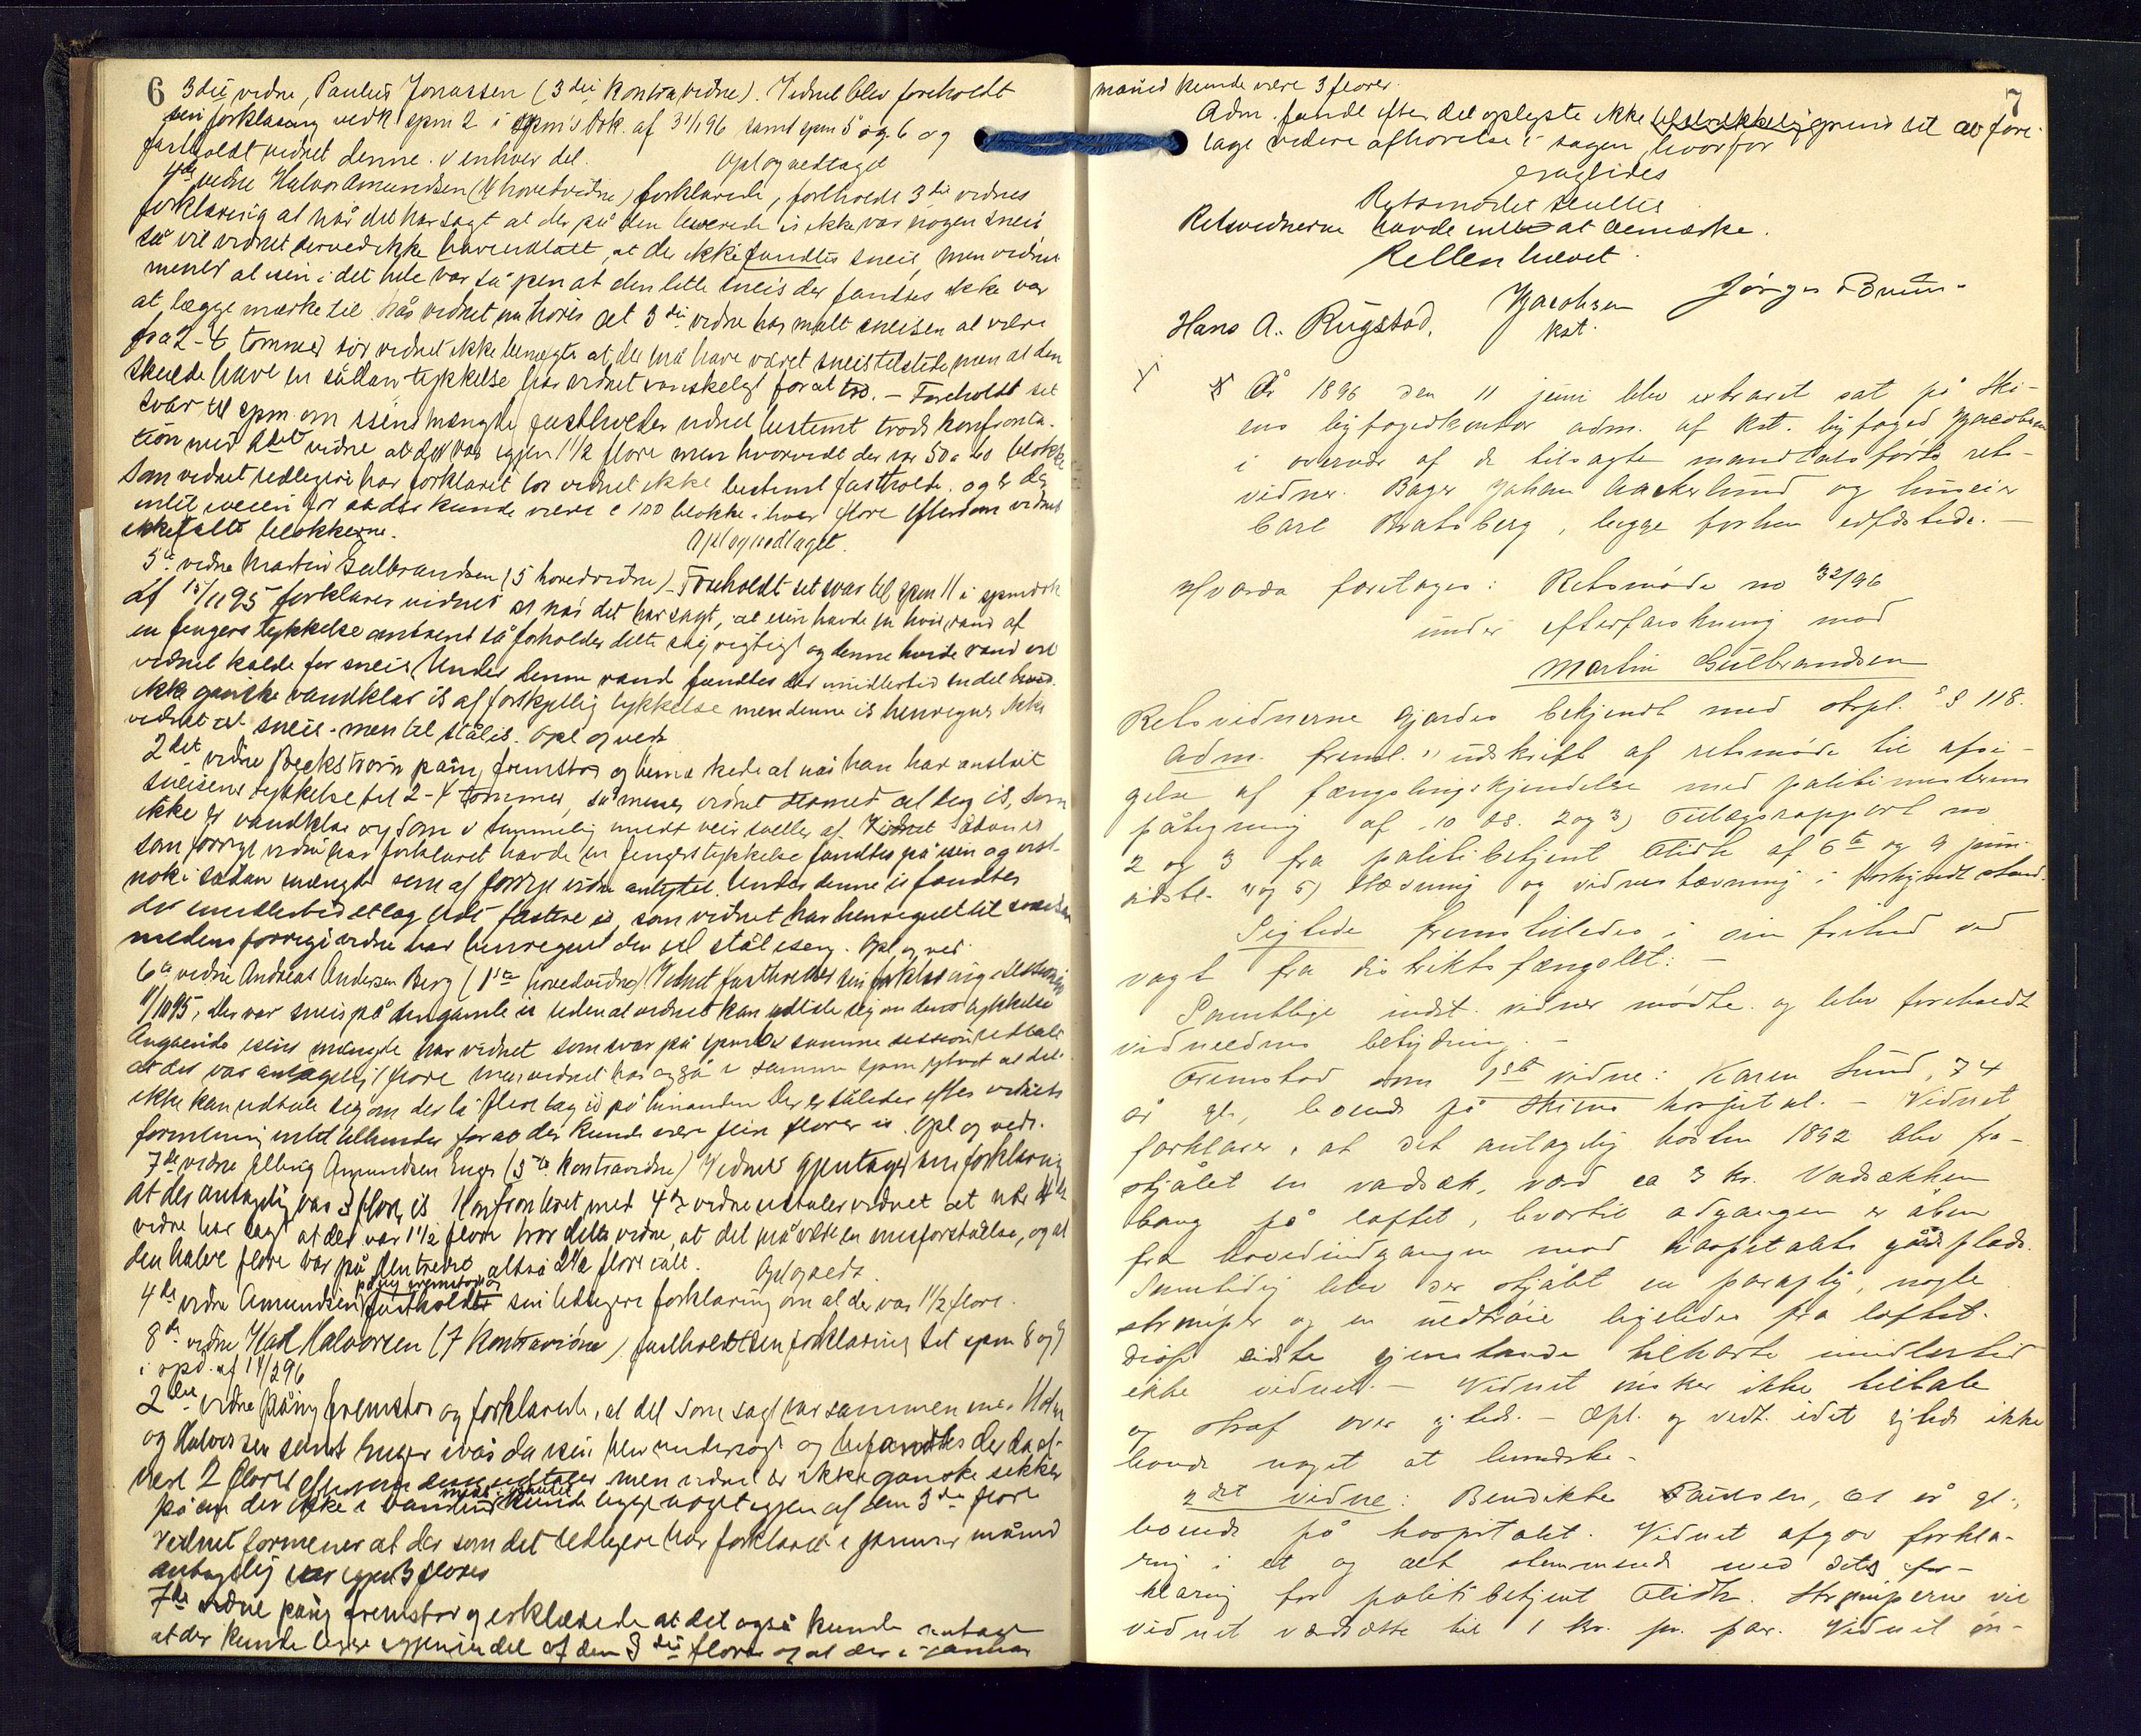 6
3die vidne, Paulus Jonassen (3die Kontravidne). Vidnet blev foreholdt
sin forklaring vedk spm 2 i spm's Dok. af 31/1 96 samt spm 5 og 6 og
fastholdt vidnet denne i enhver del. Opl og vedtaget
4de vidne Halvor Amundsen (4 hovedvidne) forklarede, foreholdt 3die vidnes
forklaring at når det har sagt at der på den leverede is ikke var nogen sneis
så vil vidnet derved ikke have udtalt, at der ikke fandtes sneis, men vidnet
mener at isen i det hele var så pen at den lette sneis der fandtes ikke var
at lægge mærke til. Når vidnet nu hører at 3die vidne har målt sneisen at være
fra 2-4 tommer tør vidnet ikke benægte at der må have været sneis tilstede men at den
skulde have en sådan tykkelse har vidnet vanskeligt for at tro. - Foreholdt sit
svar til spm om isens mængde fastholder vidnet bestemt trods konfronta-
tion med vidne at det var igjen 1 1/2 flore men hvorvidt der var 50 a 60 blokke
som vidnet tidligere har forklaret tør vidnet ikke bestemt fastholde. og er der
intet iveien for at der kunde være c 100 blokke i hver flore eftersom vidnet
ikke talte blokkerne. Opl og vedtaget.
5te vidne Martin Gulbrandsen (5 hovedvidne) - Foreholdt sit svar til spm 11 i spmdok
af 15/11 95 forklarer vidnet at når det har sagt, at isen havde en hvid rand af
en fingers tykkelse omtrent så forholder dette sig rigtigt og denne hvide rand vil
vidnet kalde for sneis. Under denne rand fandtes der imidlertid en del
ikke ganske vandklar is af forskjellig tykkelse men denne is henregner ikke
vidnet til sneis - men til stålis. Opl og vedt
2det vidne Beckstrøm påny fremstod og bemærkede at når han har anslået
sneisens tykkelse til 2-4 tommer, så mener vidnet dermed al den is, som
ikke er vandklar og som i temmelig mildt veir smelter af. Sådan is
som forrige vidne har forklaret havde en fingers tykkelse fandtes på isen og vist-
nok i sådan mængde som af forrige vidne antydet. Under denne is fandtes
der imidlertid et lag lidt fastere is, som vidnet har henregnet til sneisen
medens forrige vidne har henregnet den til stålisen. Opl og ved.
6te vidne Andreas Andersen Berg (1ste hovedvidne) Vidnet fastholder sin forklaring i session
11/10 95, der var sneis på den gamle is uden at vidnet kan udtale sig om dens tykkelse
Angående isens mængde har vidnet som svar på spm i samme session udtalt
at der var antagelig 1 flore men vidnet har også i samme spm sagt at det
ikke kan udtale sig om der lå flere lag is på hinanden. Der er således efter vidnets
formening intet til hinder for at der kunde være flere florer is. Opl og vedt.
7de vidne Elling Amundsen Enger (5te Kontravidne) Vidnet gjentager sin forklaring
at der antagelig var 3 flore is. Konfronteret med 4de vidne udtaler vidnet at når 4de
vidne har sagt at det var 1 1/2 flore tror dette vidne, at det må være en misforståelse, og at
den halve flore var på den tredie, altså 2 1/2 flore ialt. Opl og vedt.
4de vidne Amundsen påny fremstod og fastholdt sin tidligere forklaring om at der var 1 1/2 flore.
8de vidne Karl Halvorsen (7 Kontravidne) fastholdt sin forklaring til spm 8 og 9
i spd. af 14/2 96
2det vidne påny fremstod og forklarede, at det som sagt var sammen med Holm
og Halvorsen samt Enger ivår da isen blev undersøgt og befandtes der da at
være 2 florer men vidnet er ikke ganske sikker
på om der ikke i kunde ligge noget igjen af den 3die flore
Vidnet formener at der som det tidligere har forklaret i januar måned
antagelig var igjen 3 florer
7de vidne påny fremstod og erklærede at det også kunde antage
at der kunde ligge igjen en del af den 3die flore og at der i januar
7
måned kunde være 3 florer.
Adm. fandt efter det oplyste ikke tilstrækkelig grund til at fore-
tage videre afhørelse i sagen, hvorfor
eragtedes
Retsmødet sluttet
Retsvidnerne havde intet at bemærke.
Retten hævet.
Hans A. Rugstad. Jacobsen Jørgen Bruun
kst.
År 1896 den 11 juni blev extraret sat på Ski-
ens byfogedkontor adm. af kst. byfoged Jacobsen
i overvær af de tilsagte mandtalsførte rets-
vidner. Bager Johan Aackerlund og huseier
Carl Bratsberg, begge forhen edfæstede. -
Hvorda foretages: Retsmøde no 32/96
under efterforskning mod
Martin Gulbrandsen
Retsvidnerne gjordes bekjendt med strpl.s § 118.
Adm. freml. 1) udskrift af retsmøde til afsi-
gelse af fængslingskjendelse med politimesterens
påtegning af 10 ds. 2 og 3) Tillægsrapport no
2 og 3 fra politibetjent Flidh af 6te og 9 juni
sidstl. 4 og 5) Stævning og vidnestævning i forkyndt stand.
Sigtede fremstilledes i sin frihed ved
vagt fra distriktsfængslet: -
Samtlige indst. vidner mødte og blev foreholdt
vidneedens betydning. -
Fremstod som 1ste vidne: Karen Lund, 74
år gl., boende på Skiens hospital. - Vidnet
forklarer, at det antagelig høsten 1892 blev fra-
stjålet en vadsæk, værd ca 3 kr. Vadsækken
hang på loftet, hvortil adgangen er åben
fra hovedindgangen mod hospitalets gårdsplads.
Samtidig blev der stjålet en paraply, nogle
strømper og en uldtrøie ligeledes fra loftet.
Disse sidste gjenstande tilhørte imidlertid
ikke vidnet. - Vidnet ønsker ikke tiltale
og straf over sigtede. - Opl. og vedt. idet sigtede ikke
havde noget at bemærke.
2det vidne: Bendikte Paulsen, 61 år gl.,
boende på hospitalet. Vidnet afgav forkla-
ring i et og alt stemmende med dets for-
klaring for politibetjent Flidh. Strømperne vil
vidnet værdsætte til 1 kr. pr. par. Vidnet øn-